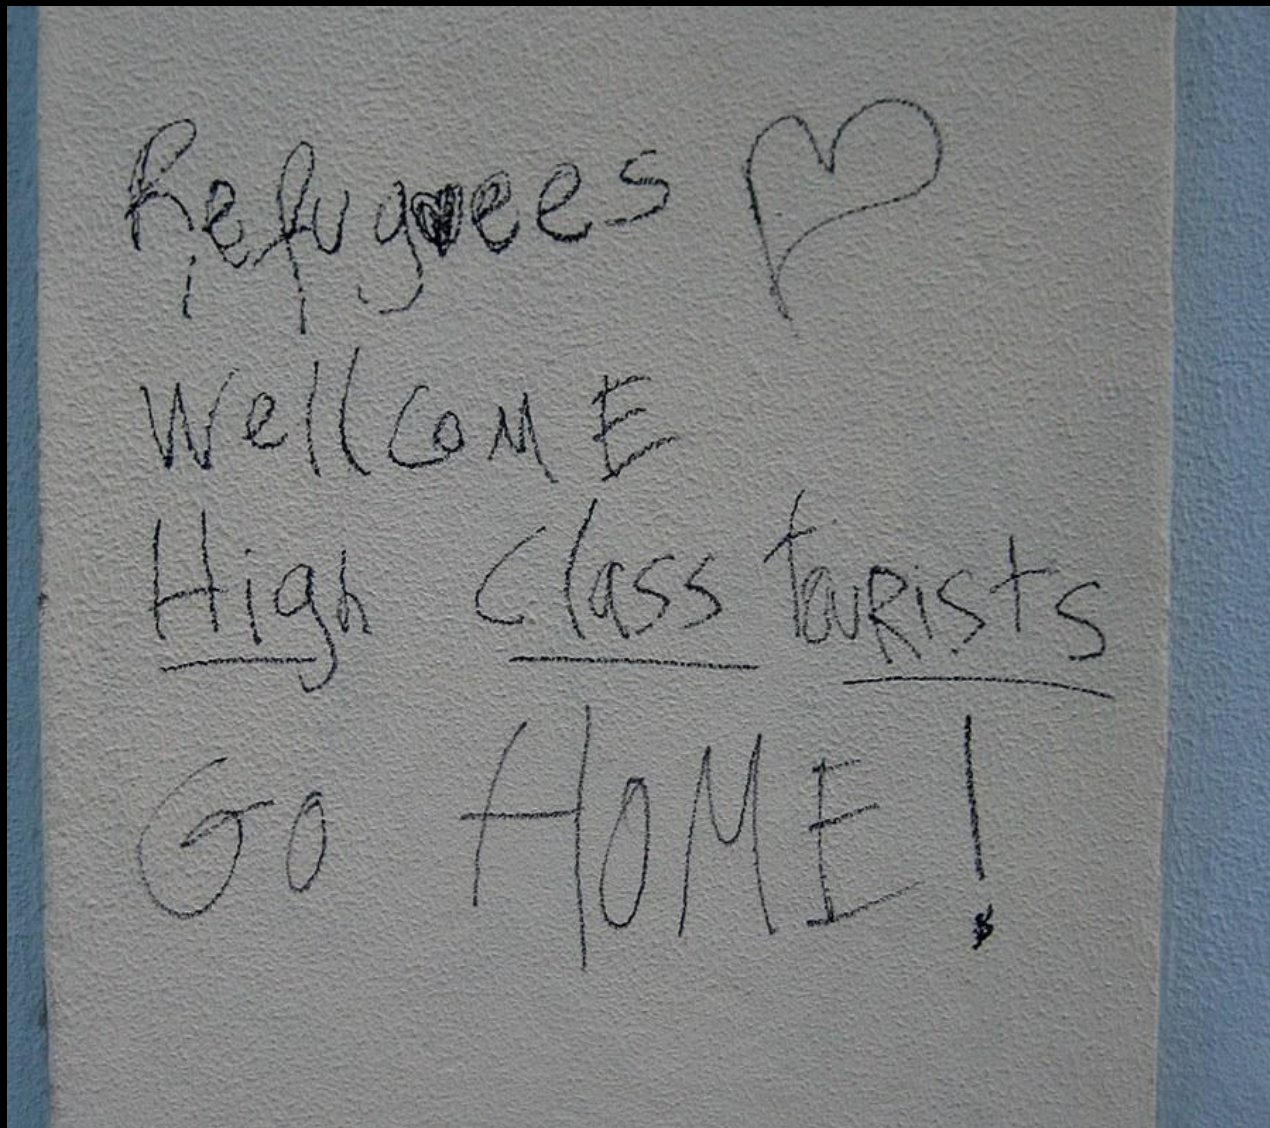 Refugees ♡
WellcoME
High class touRists
Go HoME!